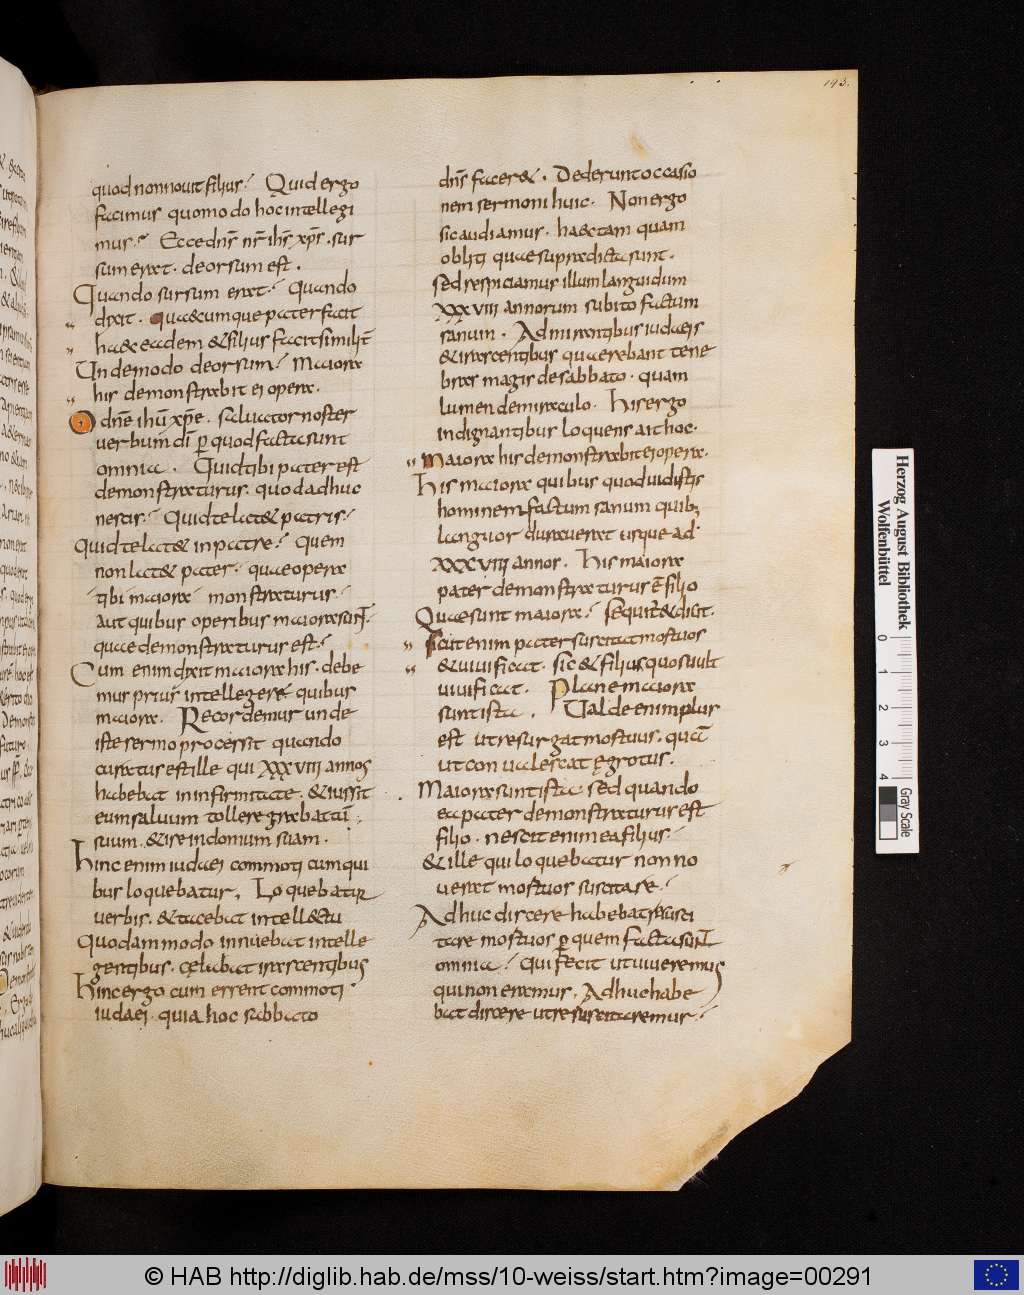 193.
quod non novit filius? Quid ergo
facimus quomodo hoc intellegi
mus? Ecce dn̄s nr̄ ih̄s xp̄s . sur
sum erat . deorsum est .
Quando sursum erat? Quando
dixit . Quaecumque pater facit
haec eadem & filius facit similit̄
Unde modo deorsum? Maiora
his demonstrabit ei opera .
O dn̄e ihū xp̄e . salvator noster
verbum dī ꝑ quod facta sunt
omnia . Quid tibi pater est
demonstraturus . quod adhuc
nescis? Quid te lat& patris?
Quid te lat& in patre? Quem
non lat& pater? quae opera
tibi maiora monstraturus?
aut quibus operibus maiora sunt .
quae demonstraturus est?
Cum enim dixit maiora his . debe
mus prius intellegere quibus
maiora . Recordemur unde
iste sermo processit quando
curatus est ille qui XXXVIII annos
habebat in infirmitate . & iussit
eum salvum tollere grabatū
suum . & ire in domum suam .
Hinc enim iudaei commoti cum qui
bus loquebatur . Loquebatur
verbis . & tacebat intell&tu
Quodammodo innuebat intelle
gentibus . celabat irascentibus
Hinc ergo cum errent commoti
iudaei . quia hoc sabbato
dn̄s facer& . Dederunt occasio
nem sermoni huic . Non ergo
sic audiamus . haec tam quam
obliti quae supra dicta sunt .
sed respiciamus illum languidum
XXXVIII annorum subito factum
sanum . Admirantibus iudaeis
& irascentibus quaerebant tene
bras magis de sabbato . quam
lumen de miraculo . His ergo
indignantibus loquens ait hoc .
Maiora his demonstrabit ei opera .
His maiora quibus quod vidistis
hominem factum sanum quib;
languor duraverat usque ad
XXXVIII annos . His maiora
pater demonstraturus ē filio
Quae sunt maiora? Sequit̄ & dicit .
Sicut enim pater suscitat mortuos
& vivificat . sic & filius quos vult
vivificat . Plane maiora
sunt ista . Valde enim plus
est ut resurgat mortuus . quā
ut convalescat ęgrotus .
Maiora sunt ista . sed quando
ea pater demonstraturus est
filio . nescit enim ea filius?
& ille qui loquebatur non no
verat mortuos suscitare?
Adhuc discere habebat resusci
tare mortuos ꝑ quem facta sunt
omnia? Qui fecit ut viveremus
qui non eramus . Adhuc habe
bat discere ut resuscitaremur?
Herzog August Bibliothek
Wolfenbüttel
0 1 2 3 4
Gray Scale
© HAB http://diglib.hab.de/mss/10-weiss/start.htm?image=00291